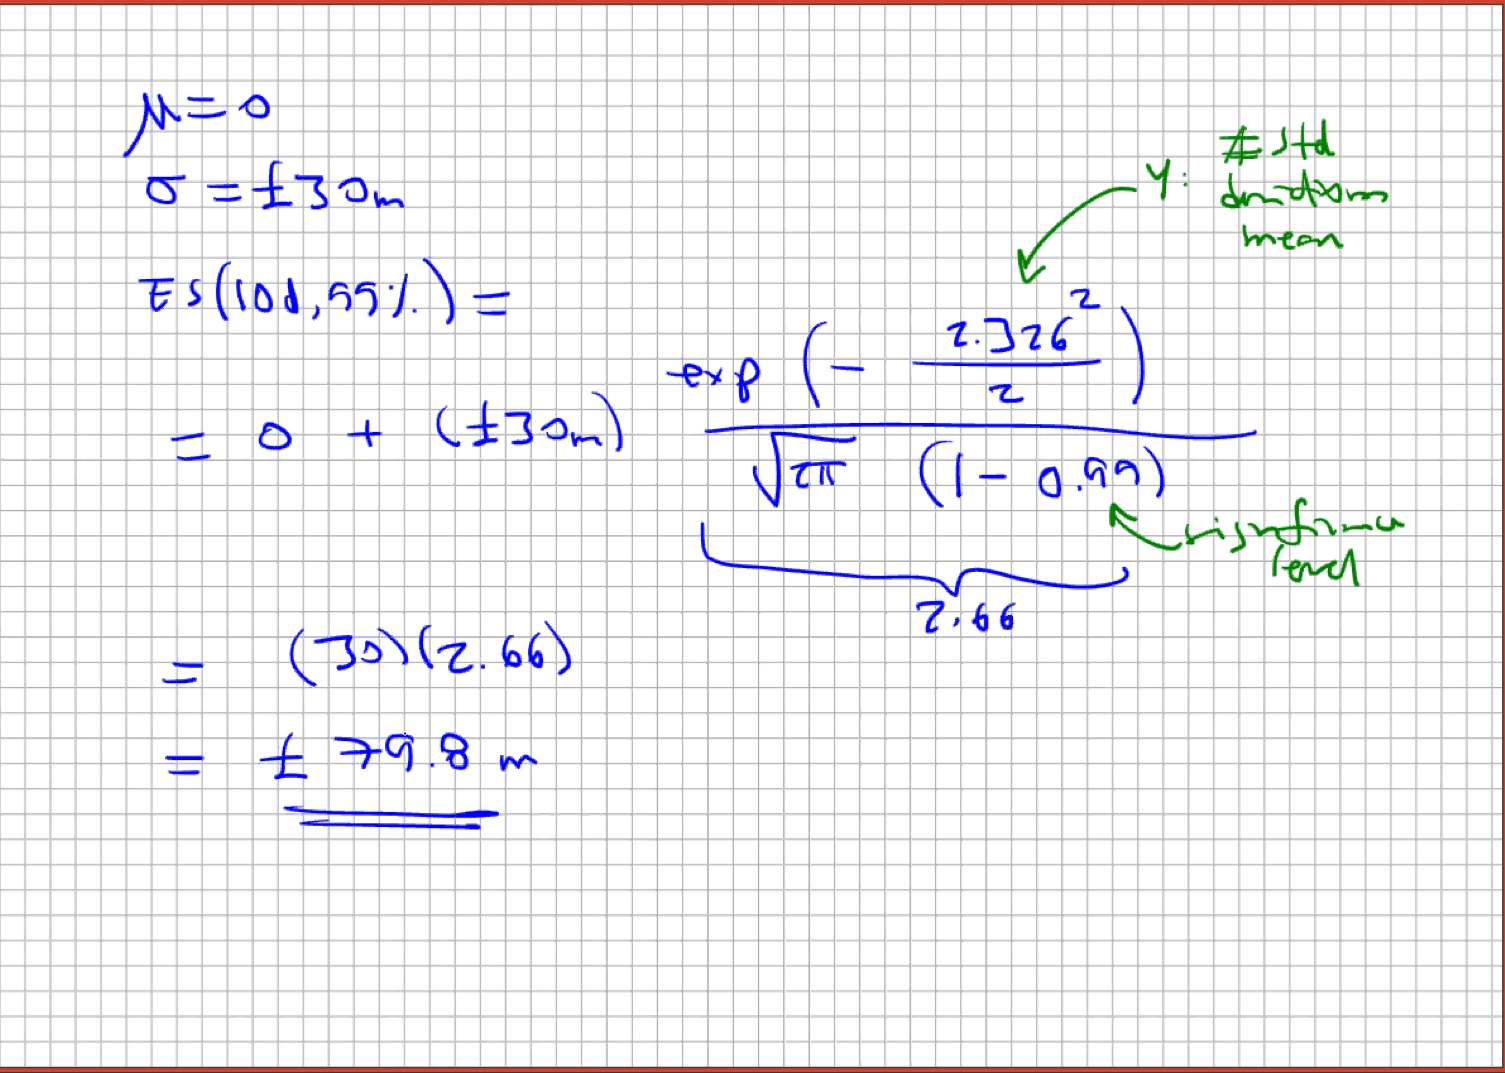 μ = 0
σ = £30m
ES(10d, 99%) =
= 0 + (£30m) exp(- 2.326² / 2) / √2π (1 - 0.99)
Y: # std
deviations
mean
significance
level
2.66
= (30)(2.66)
= £ 79.8 m